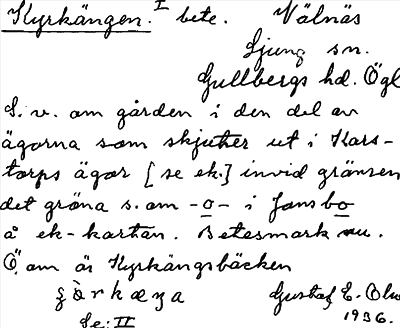 Kyrkängen. I bete. Välnäs
Ljung sn.
Gullbergs hd. Ögl
S. v. om gården i den del av
ägorna som skjuter ut i Kars-
torps ägor [se ek.] invid gränsen
det gröna s. om -o- i Jonsbo
å ek-kartan. Betesmark nu.
Ö. om är Kyrkängsbäcken
Gustaf E. Olu
1936.
Se: II